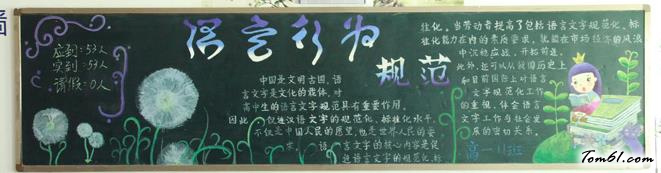 应到：53人
实到：53人
请假：0人
语言行为
规范
中国是文明古国，语
言文字是文化的载体，对
高中生的语言文字规范具有重要作用。
因此，促进汉语文字的规范化、标准化水平，
不仅是中国人民的愿望，也是世界人民的要
求。语言文字的核心内容是促
进语言文字的规范化、标
准化。当劳动者提高了包括语言文字规范化、标
准化能力在内的素质要求，就能在市场经济的风浪
中沉稳应战，开拓前进。
此外，还可以从我国历史上
和目前国际上对语言
文字规范化工作
的重视，体会语言
文字工作与社会发
展的密切关系。
高一11班
Tom61.com